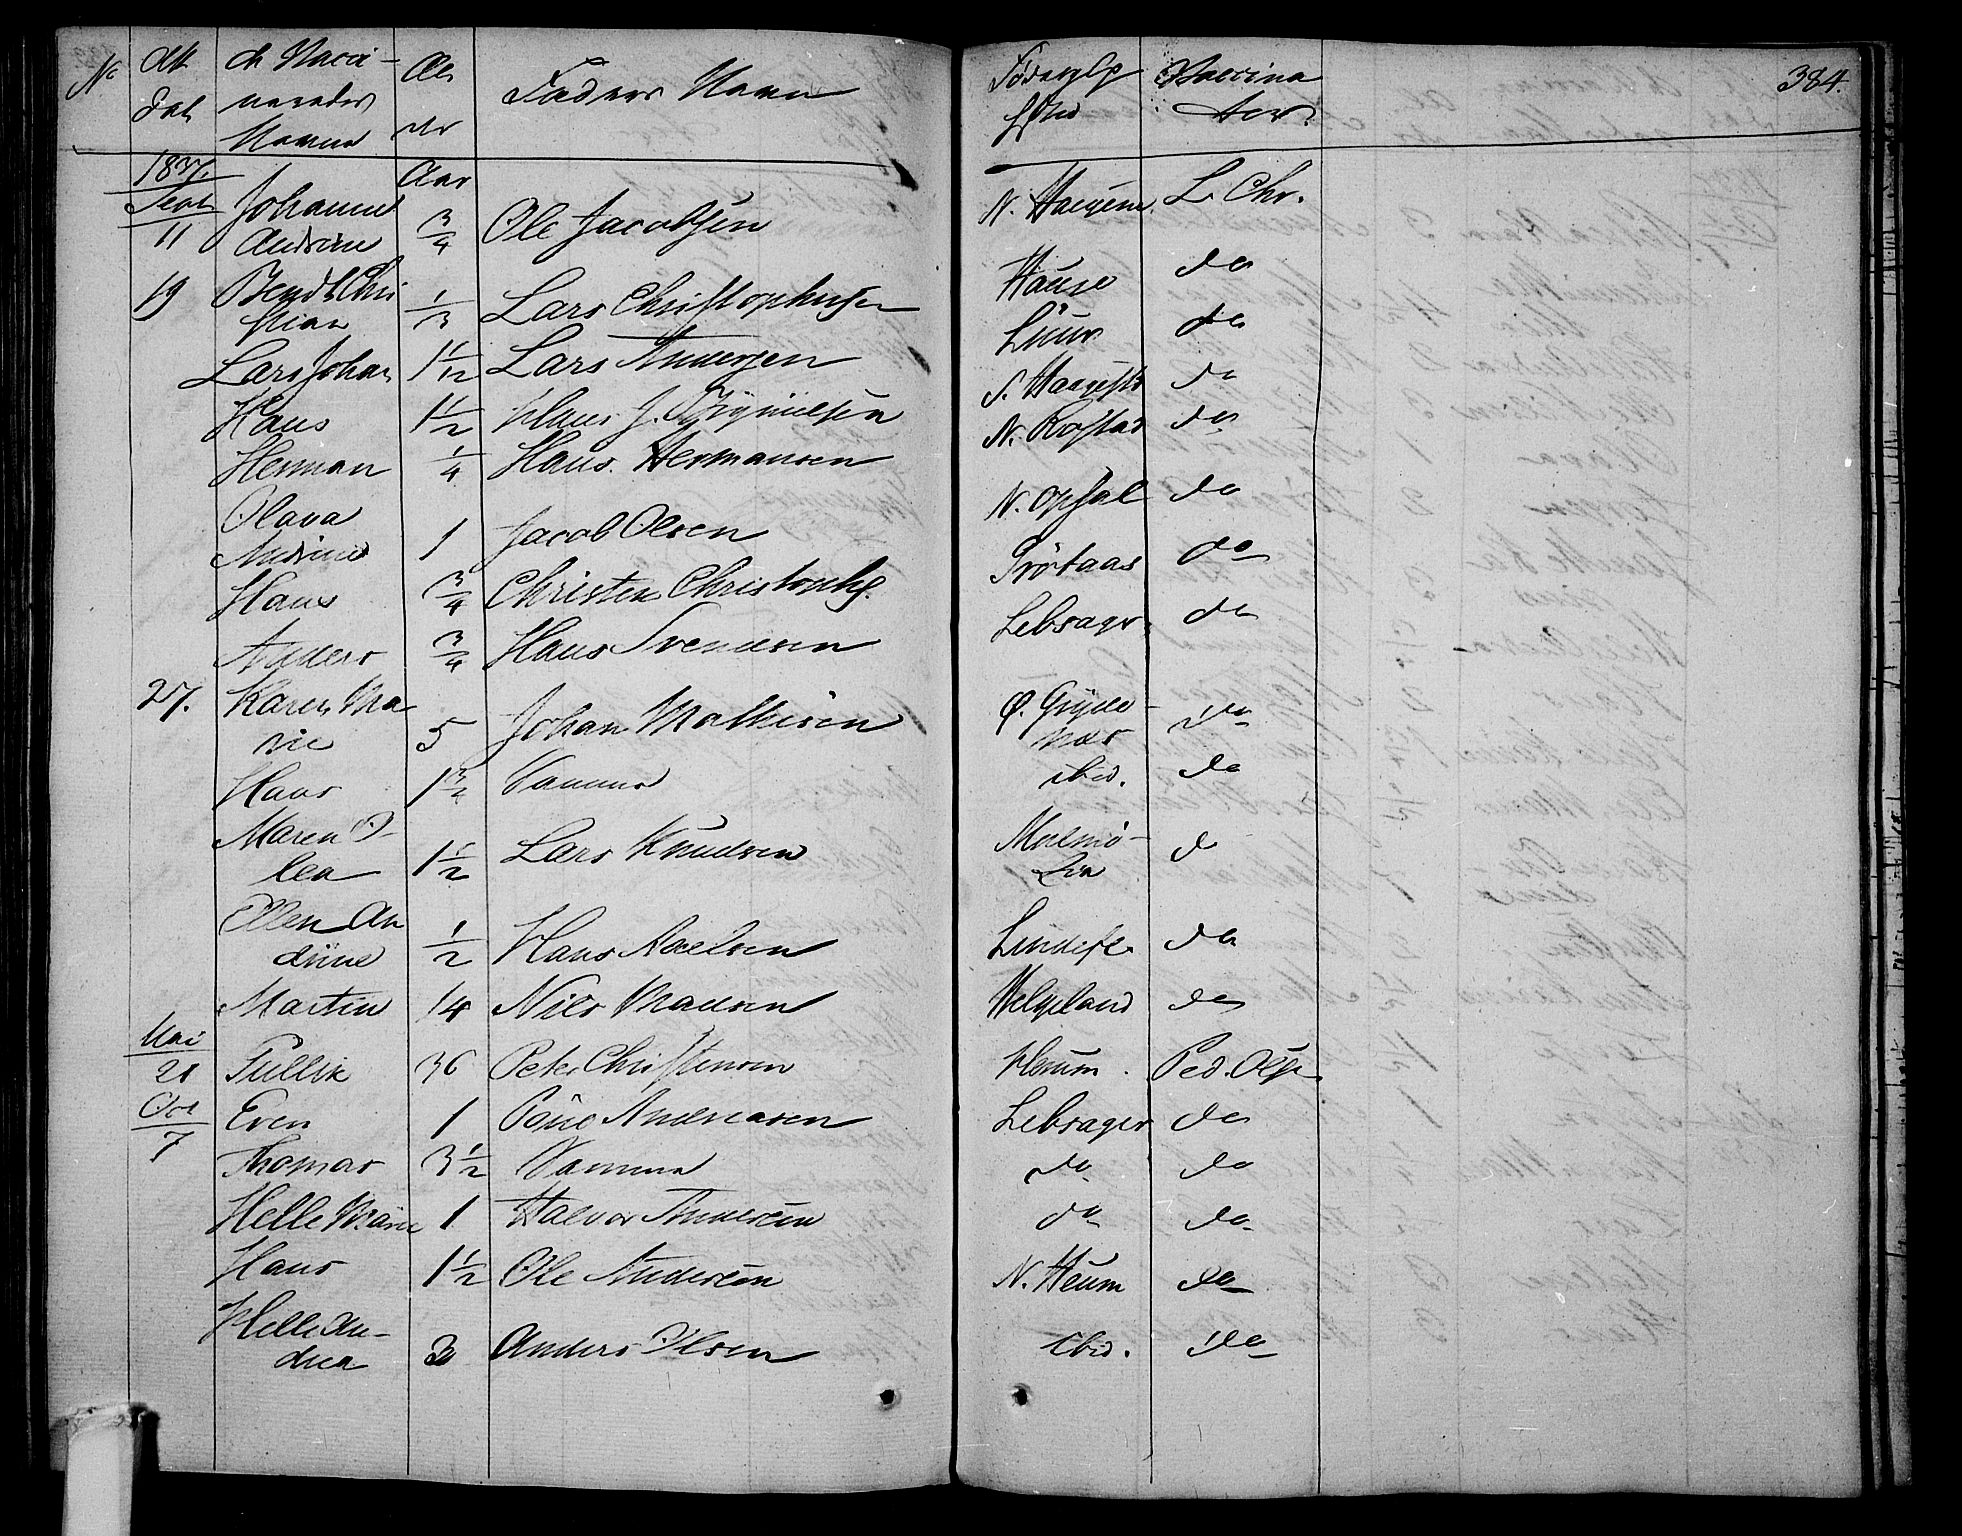 No
Att
dat
de Vacci-
neredes
Navne
Al
der
Faders Navn
Fødsels
Sted
Vaccina
tør.
384.
1837.
Sept
11
Johanne
Andrine
Aar
3/4
Ole Jacobsen
L. Chr.
19
Bendt Chri
stian
1/3
Lars Christophersen
Hause
do
Lars Johan
1 1/12
Lars Andersen
do
Hans
1 1/2
Hans J.
do
Herman
1/4
Hans Hermansen
N. Rostad
do
Olava
Andrine
1
Jacob Olsen
N. Opsal
do
Hans
3/4
Christen Christoph.
do
Anders
3/4
Hans Svendsen
Lebsager
do
27.
Karen Ma
rie
5
Johan Mathisen
Ø.
do
Hans
1 3/4
Samme
ibid.
do
Maren O-
lea
1 1/2
Lars Knudsen
do
Ellen An
drine
1/2
Hans Axelsen
do
Martin
14
Nils Madsen
Helgeland
do
Mai
21
Tullik
36
Peter Christensen
Heum
Ped. Ols.
Oct
7
Even
1
Andreasen
Lebsager
do
Thomas
3 1/2
Samme
do
do
Helle Marie
1
Halvor Andersen
do
do
Hans
1 1/2
Ole Andersen
N. Heum
do
Helle An-
drea
Anders Olsen
ibid.
do